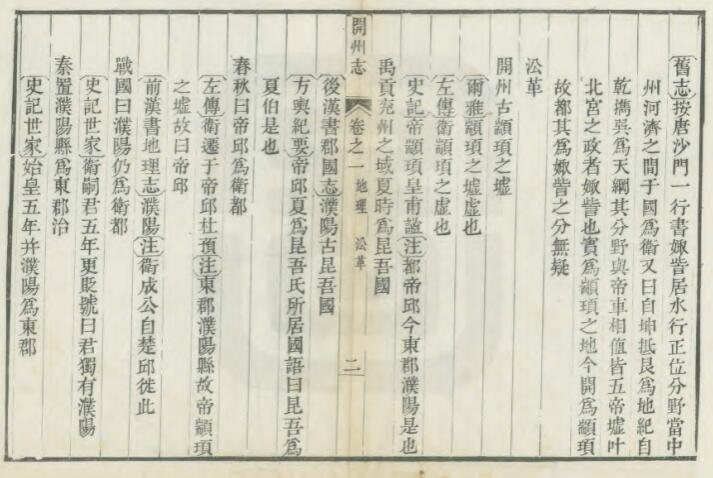 舊志按唐沙門一行書娵訾居水行正位分野當中
州河濟之間于國爲衞又曰自坤抵艮爲地紀自
乾攜巽爲天綱其分野與帝車相値皆五帝墟叶
北宮之政者娵訾也實爲顓頊之地今開爲顓頊
故都其爲娵訾之分無疑
㳂革
開州古顓頊之墟
爾雅顓頊之墟虛也
左傳衞顓頊之虛也
史記帝顓頊皇甫謐注都帝邱今東郡濮陽是也
禹貢兖州之域夏時爲昆吾國
開州志
卷之一
地理
㳂革
二
後漢書郡國志濮陽古昆吾國
方輿紀要帝邱夏爲昆吾氏所居國語曰昆吾爲
夏伯是也
春秋曰帝邱爲衞都
左傳衞遷于帝邱杜預注東郡濮陽縣故帝顓頊
之墟故曰帝邱
前漢書地理志濮陽注衞成公自楚邱徙此
戰國曰濮陽仍爲衞都
史記世家衞嗣君五年更貶號曰君獨有濮陽
秦置濮陽縣爲東郡治
史記世家始皇五年幷濮陽爲東郡